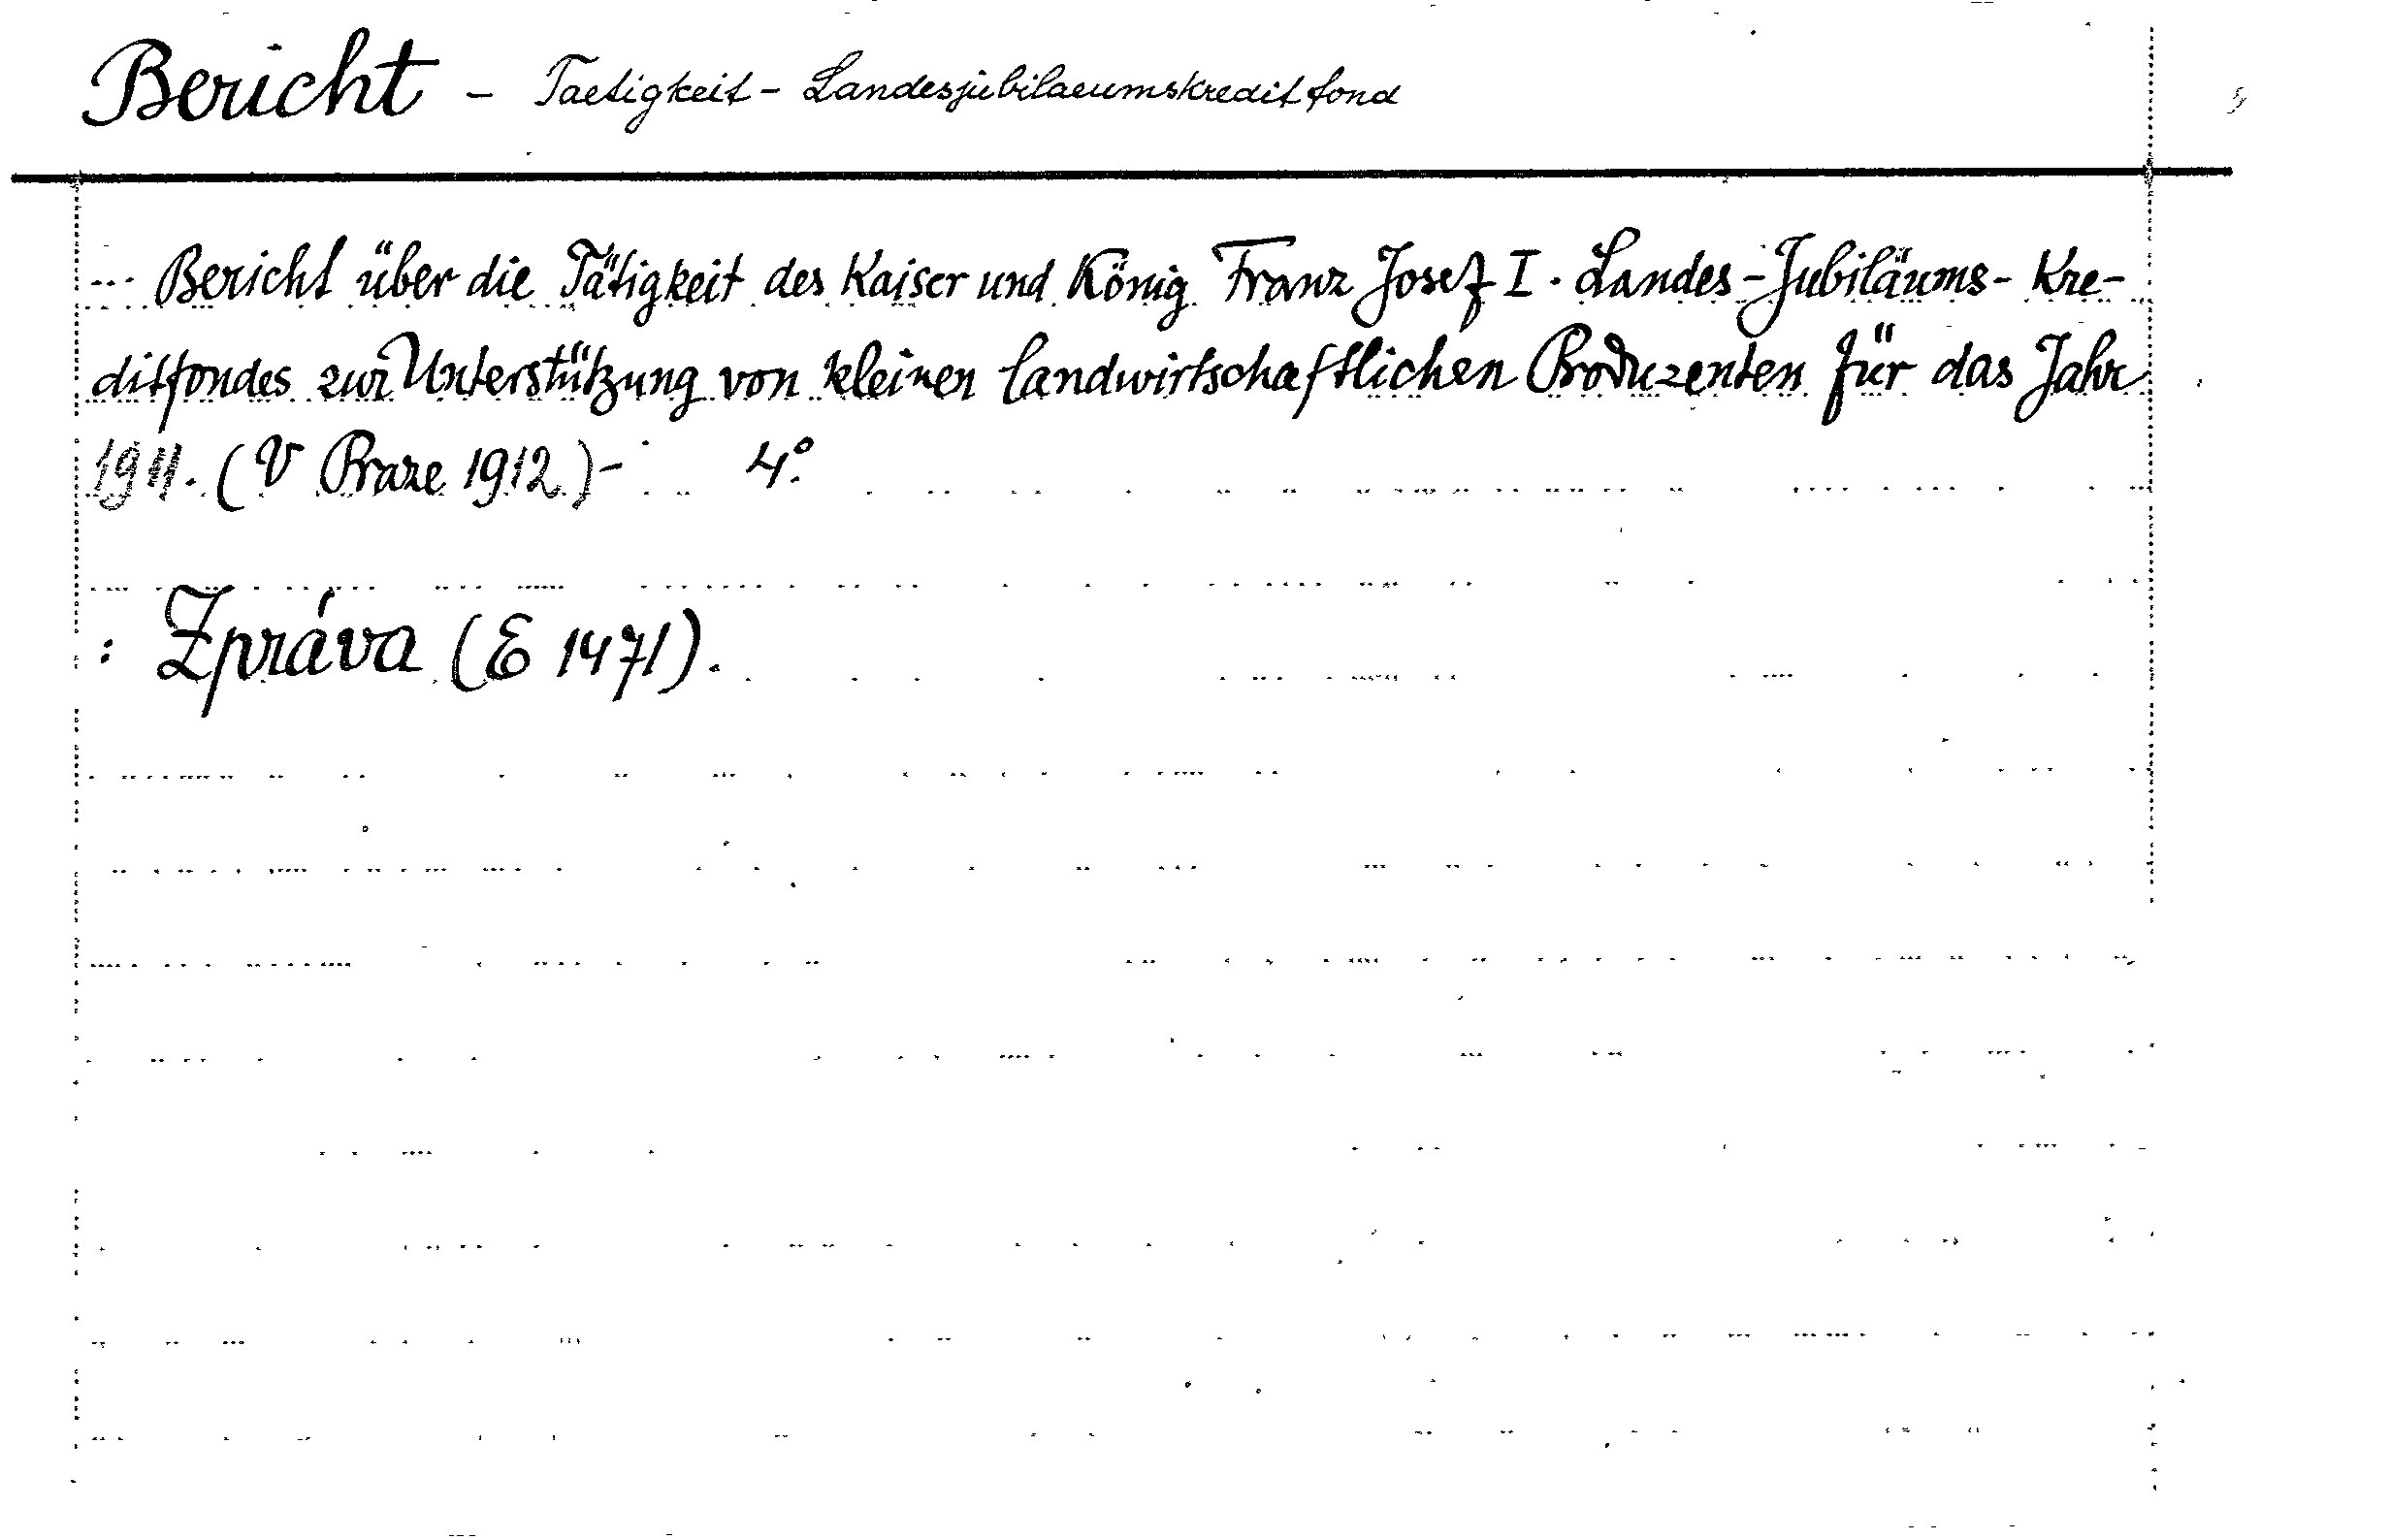 Bericht - Taetigkeit - Landesjubilaeumskreditfond
... Bericht über die Tätigkeit des Kaiser und König Franz Josef I. Landes-Jubiläums-Kre-
ditfondes zur Unterstützung von kleinen landwirtschaftlichen Produzenten für das Jahr
1911. (V Praze 1912) - 4°.
: Zpráva (E 1471).